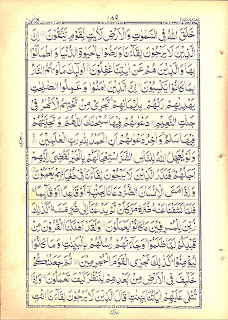 ١٨٩
خَلَقَ اللّٰهُ فِي السَّمٰوٰتِ وَالْاَرْضِ لَاٰيٰتٍ لِّقَوْمٍ يَّتَّقُوْنَ اِنَّ
الَّذِيْنَ لَا يَرْجُوْنَ لِقَآءَنَا وَرَضُوْا بِالْحَيٰوةِ الدُّنْيَا وَاطْمَاَنُّوْا
بِهَا وَالَّذِيْنَ هُمْ عَنْ اٰيٰتِنَا غٰفِلُوْنَ اُولٰٓئِكَ مَاْوٰىهُمُ النَّارُ
بِمَا كَانُوْا يَكْسِبُوْنَ اِنَّ الَّذِيْنَ اٰمَنُوْا وَعَمِلُوا الصّٰلِحٰتِ
يَهْدِيْهِمْ رَبُّهُمْ بِاِيْمَانِهِمْ تَجْرِيْ مِنْ تَحْتِهِمُ الْاَنْهٰرُ فِيْ
جَنّٰتِ النَّعِيْمِ دَعْوٰىهُمْ فِيْهَا سُبْحٰنَكَ اللّٰهُمَّ وَتَحِيَّتُهُمْ
فِيْهَا سَلٰمٌ وَاٰخِرُ دَعْوٰىهُمْ اَنِ الْحَمْدُ لِلّٰهِ رَبِّ الْعٰلَمِيْنَ
وَلَوْ يُعَجِّلُ اللّٰهُ لِلنَّاسِ الشَّرَّ اسْتِعْجَالَهُمْ بِالْخَيْرِ لَقُضِيَ اِلَيْهِمْ
اَجَلُهُمْ فَنَذَرُ الَّذِيْنَ لَا يَرْجُوْنَ لِقَآءَنَا فِيْ طُغْيَانِهِمْ يَعْمَهُوْنَ
وَاِذَا مَسَّ الْاِنْسَانَ الضُّرُّ دَعَانَا لِجَنْۢبِهٖٓ اَوْ قَاعِدًا اَوْ قَآئِمًا
فَلَمَّا كَشَفْنَا عَنْهُ ضُرَّهٗ مَرَّ كَاَنْ لَّمْ يَدْعُنَآ اِلٰى ضُرٍّ مَّسَّهٗ كَذٰلِكَ
زُيِّنَ لِلْمُسْرِفِيْنَ مَا كَانُوْا يَعْمَلُوْنَ وَلَقَدْ اَهْلَكْنَا الْقُرُوْنَ مِنْ
قَبْلِكُمْ لَمَّا ظَلَمُوْا وَجَآءَتْهُمْ رُسُلُهُمْ بِالْبَيِّنٰتِ وَمَا كَانُوْا
لِيُؤْمِنُوْا كَذٰلِكَ نَجْزِي الْقَوْمَ الْمُجْرِمِيْنَ ثُمَّ جَعَلْنٰكُمْ
خَلٰٓئِفَ فِي الْاَرْضِ مِنْۢ بَعْدِهِمْ لِنَنْظُرَ كَيْفَ تَعْمَلُوْنَ وَاِذَا
تُتْلٰى عَلَيْهِمْ اٰيَاتُنَا بَيِّنٰتٍ قَالَ الَّذِيْنَ لَا يَرْجُوْنَ لِقَآءَنَا ائْتِ